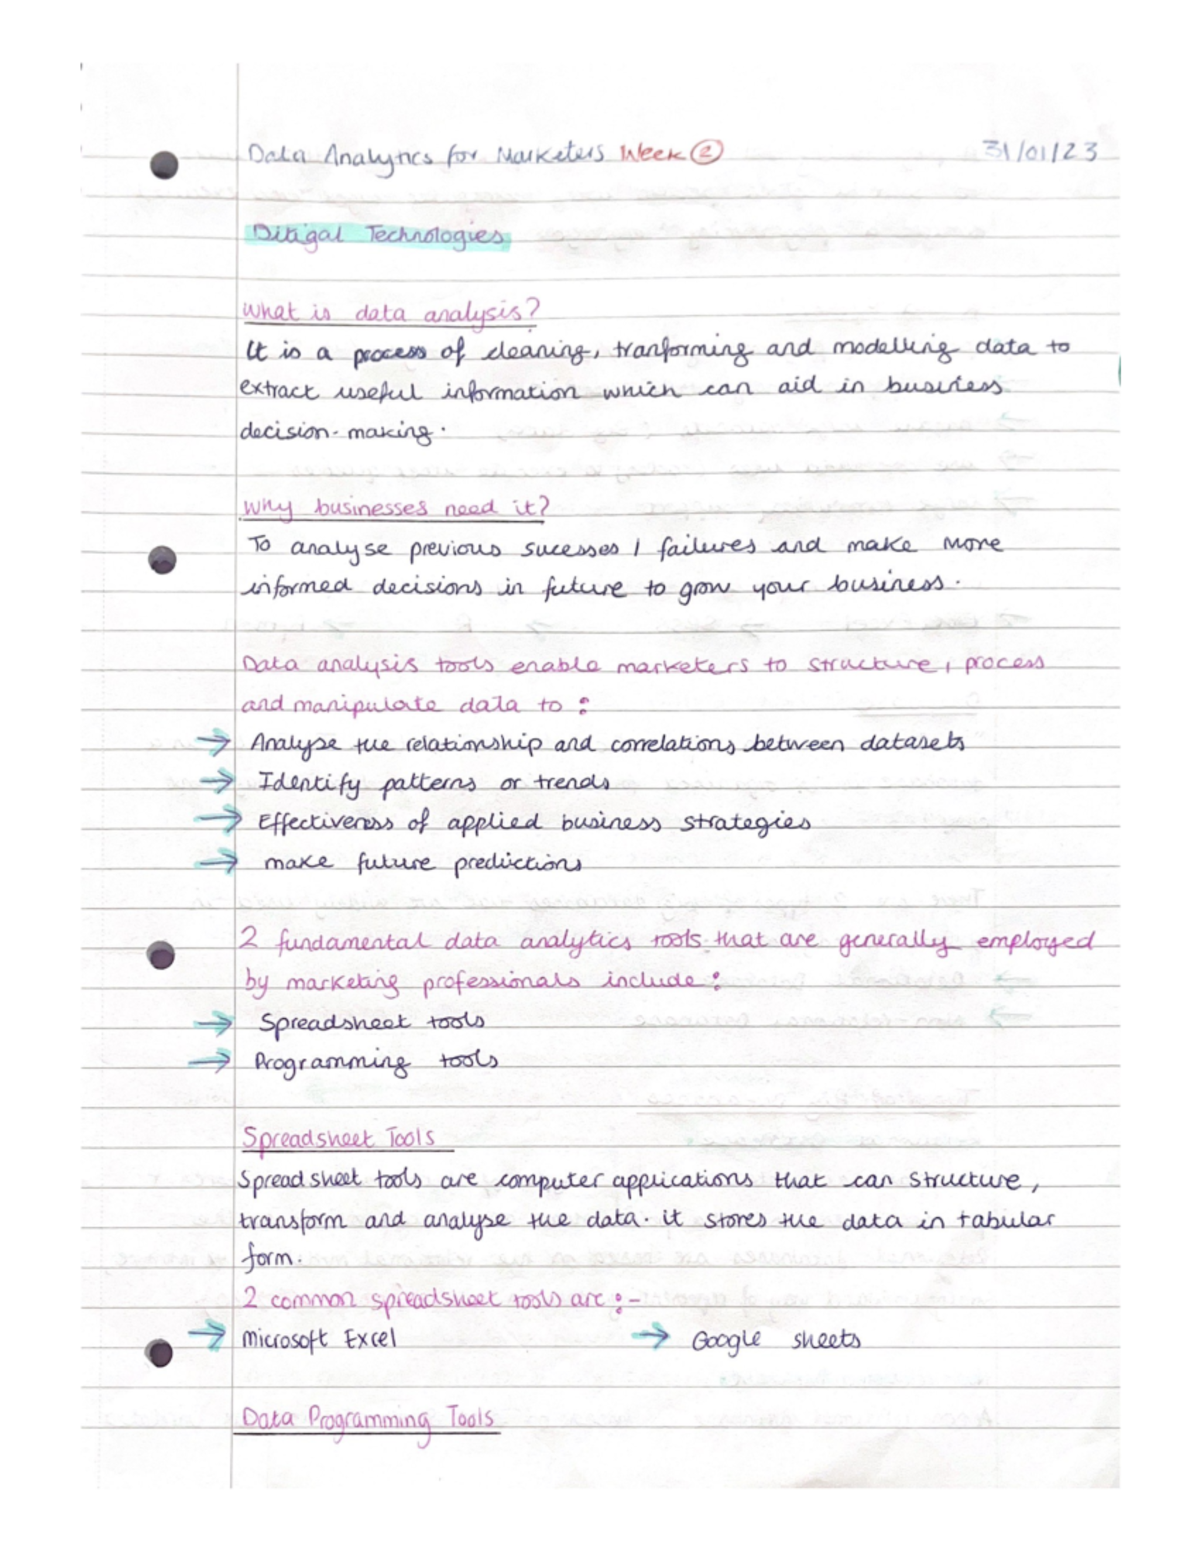 Data Analytics for Marketers Week ② 31/01/23
Ditigal Technologies
What is data analysis?
It is a process of cleaning, tranforming and modelling data to
extract useful information which can aid in business
decision-making.
Why businesses need it?
To analyse previous sucesses / failures and make more
informed decisions in future to grow your business.
Data analysis tools enable marketers to structure, process
and manipulate data to :
→ Analyse the relationship and correlations between datasets
→ Identify patterns or trends
→ Effectiveness of applied business strategies
→ make future predictions
2 fundamental data analytics tools that are generally employed
by marketing professionals include :
→ Spreadsheet tools
→ Programming tools
Spreadsheet Tools
Spreadsheet tools are computer applications that can structure,
transform and analyse the data. it stores the data in tabular
form.
2 common spreadsheet tools are :-
→ Microsoft Excel → Google sheets
Data Programming Tools